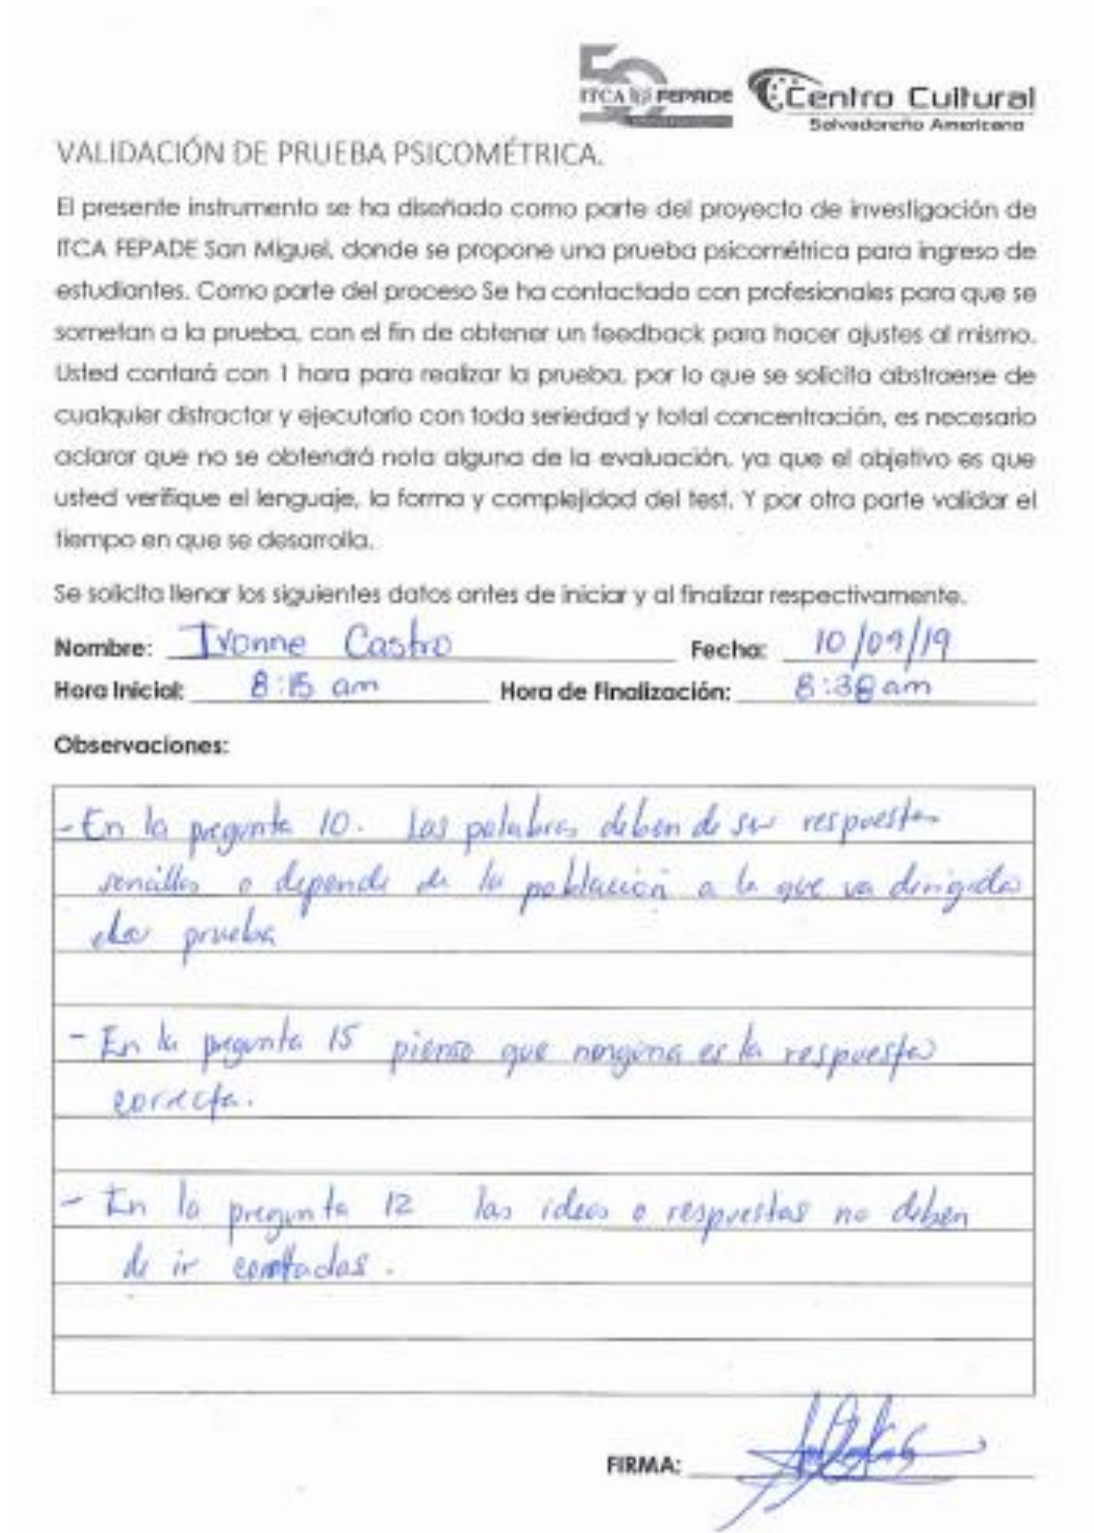 50
ITCA FEPADE
Centro Cultural
Salvadoreño Americano
VALIDACIÓN DE PRUEBA PSICOMÉTRICA.
El presente instrumento se ha diseñado como parte del proyecto de investigación de
ITCA FEPADE San Miguel, donde se propone una prueba psicométrica para ingreso de
estudiantes. Como parte del proceso Se ha contactado con profesionales para que se
sometan a la prueba, con el fin de obtener un feedback para hacer ajustes al mismo.
Usted contará con 1 hora para realizar la prueba, por lo que se solicita abstraerse de
cualquier distractor y ejecutarlo con toda seriedad y total concentración, es necesario
aclarar que no se obtendrá nota alguna de la evaluación, ya que el objetivo es que
usted verifique el lenguaje, la forma y complejidad del test. Y por otra parte validar el
tiempo en que se desarrolla.
Se solicita llenar los siguientes datos antes de iniciar y al finalizar respectivamente.
Nombre: Ivonne Castro Fecha: 10/09/19
Hora Inicial: 8:15 am Hora de Finalización: 8:38 am
Observaciones:
- En la pregunta 10. Las palabras deben de ser respuestas
sencillas o depende de la población a la que va dirigida
la prueba
- En la pregunta 15 pienso que ninguna es la respuesta
correcta.
- En la pregunta 12 las ideas o respuestas no deben
de ir cortadas.
FIRMA: